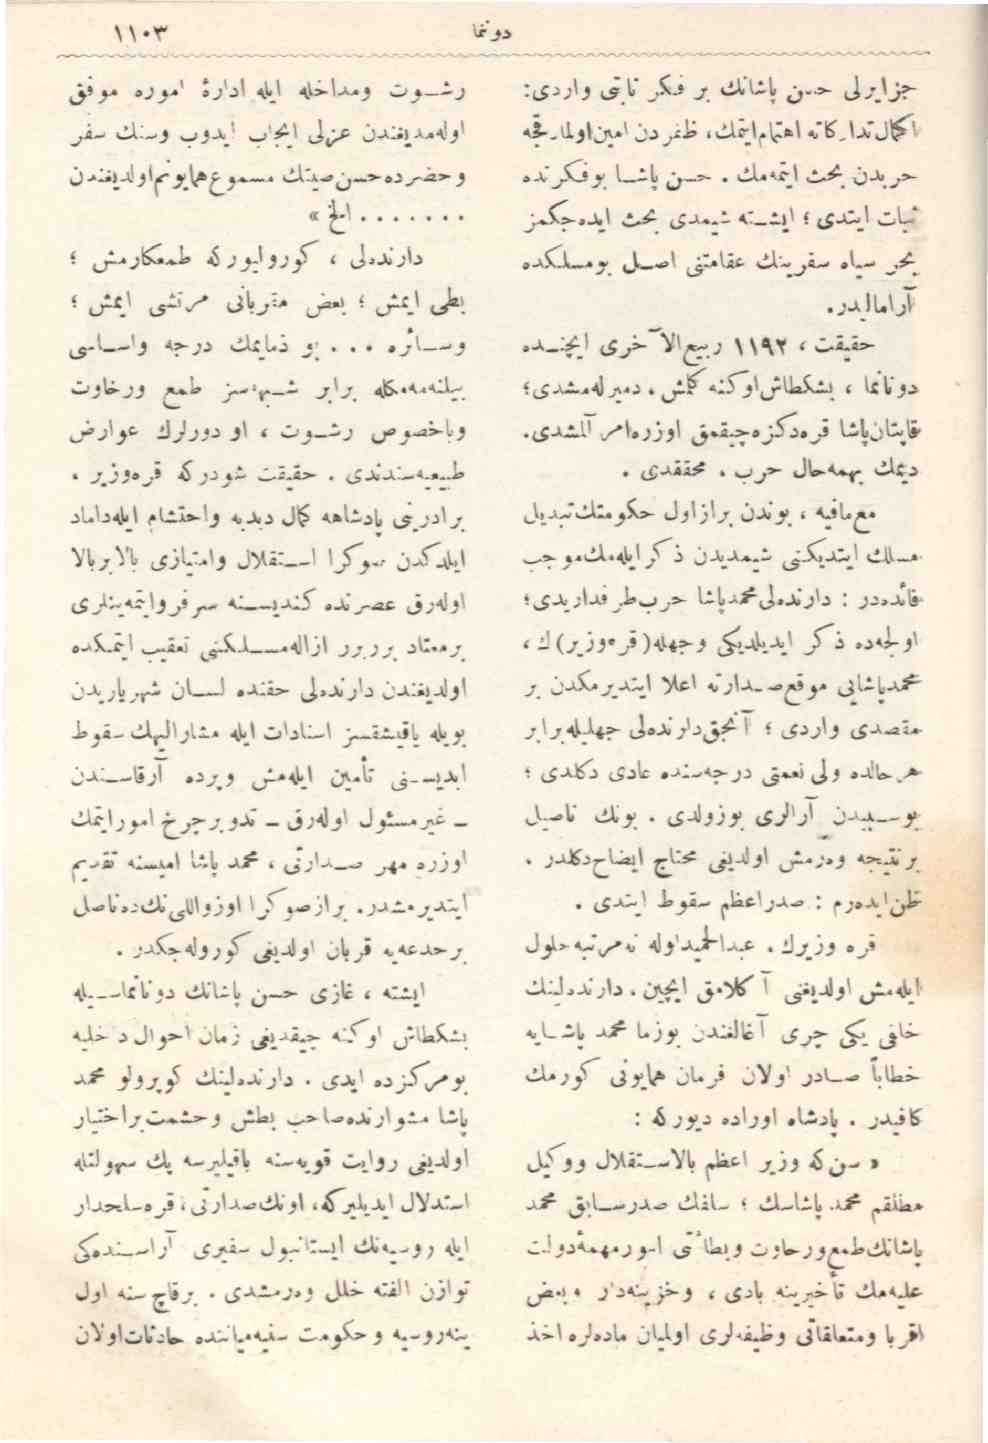 دونما
١١٠٣
جزایرلی حسن پاشانك بر فكر ثابتی واردی:
اكمال تداركاته اهتمام ایتمك، ظفردن امین اولمادقجه
حربدن بحث ایتمه مك . حسن پاشا بو فكرنده
ثبات ایتدی ؛ ایشته شیمدی بحث ایده جكمز
بحر سیاه سفرینك عقامتنی اصل بو مسلكده
آرامالیدر.
حقیقت ، ١١٩٢ ربیع الآخری ایچنده
دونانما ، بشكطاش اوكنه كلمش ، دمیرله مشدی ؛
قاپتان پاشا قره دكزه چیقمق اوزره امر آلمشدی.
دیمك بهمه حال حرب . محققدی .
مع مافیه ، بوندن بر از اول حكومتك تبدیل
مسلك ایتدیكنی شیمدیدن ذكر ایله مك موجب
فائده در : دارنده لی محمد پاشا حرب طرفداریدی ؛
اولجه ده ذكر ایدیلدیكی وجهله (قره وزیر) ك ،
محمد پاشایی موقع صدارته اعلا ایتدیرمكدن بر
مقصدی واردی ؛ آنجق دارنده لی جهلیله برابر
هر حالده ولی نعمتی درجه سنده عادی دكلدی ؛
بو سببدن آرالری بوزولدی . بونك ناصل
بر نتیجه ویرمش اولدیغی محتاج ایضاح دكلدر .
ظن ایده رم : صدر اعظم سقوط ایتدی .
قره وزیرك . عبدالحمید اوله نه مرتبه حلول
ایله مش اولدیغنی آكلامق ایچین . دارنده لینك
خلفی یكی چری آغالغندن بوزما محمد پاشایه
خطاباً صادر اولان فرمان همایونی كورمك
كافیدر . پادشاه اوراده دیوركه :
« سن كه وزیر اعظم بالاستقلال ووكیل
مطلقم محمد پاشاسك ؛ سلفك صدر سابق محمد
پاشانك طمع ورخاوت وبطائتی امور مهمهٔ دولت
علیه مك تأخیرینه بادی ، وخزینه دار وبعض
اقربا ومتعلقاتی وظیفه لری اولمیان ماده لره اخذ
رشوت ومداخله ایله ادارهٔ اموره موفق
اوله مدیغندن عزلی ایجاب ایدوب وسنك سفر
وحضرده حسن صیتك مسموع همایونم اولدیغندن
. . . . . . . . الخ »
دارنده لی ، كورولیوركه طمعكارمش ؛
بطی ایمش ؛ بعض مقربانی مرتشی ایمش ؛
وسائره . . . بو ذمایمك درجه واساسی
بیلنه مه مكله برابر شبهه سز طمع ورخاوت
وباخصوص رشوت ، او دورلرك عوارض
طبیعیه سندندی . حقیقت شودركه قره وزیر ،
برادرینی پادشاهه كمال دبدبه واحتشام ایله داماد
ایلدكدن صوكرا استقلال وامتیازی بالا بر بالا
اوله رق عصرنده كندیسنه سرفرو ایتمه ینلری
بر معتاد برر برر ازاله مسلكنی تعقیب ایتمكده
اولدیغندن دارنده لی حقنده لسان شهریاریدن
بویله یاقیشقسز اسنادات ایله مشارالیهك سقوط
ابدیسنی تأمین ایله مش وپرده آرقاسندن
ـ غیر مسئول اوله رق ـ تدویر چرخ امور ایتمك
اوزره مهر صدارتی ، محمد پاشا امیسنه تقدیم
ایتدیرمشدر. بر از صوكرا او زواللی نك ده ناصل
بر خدعه یه قربان اولدیغی كوروله جكدر .
ایشته ، غازی حسن پاشانك دونانماسیله
بشكطاش اوكنه چیقدیغی زمان احوال داخلیه
بو مركزده ایدی . دارنده لینك كوپرولو محمد
پاشا مشوارنده صاحب بطش وحشمت بر اختیار
اولدیغی روایت قویه سنه باقیلیرسه پك سهولتله
استدلال ایدیلیركه، اونك صدارتی، قره سلحدار
ایله روسیه نك ایستانبول سفیری آراسنده كی
توازن الفته خلل ویرمشدی . برقاچ سنه اول
ینه روسیه وحكومت سنیه میاننده حادثات اولان